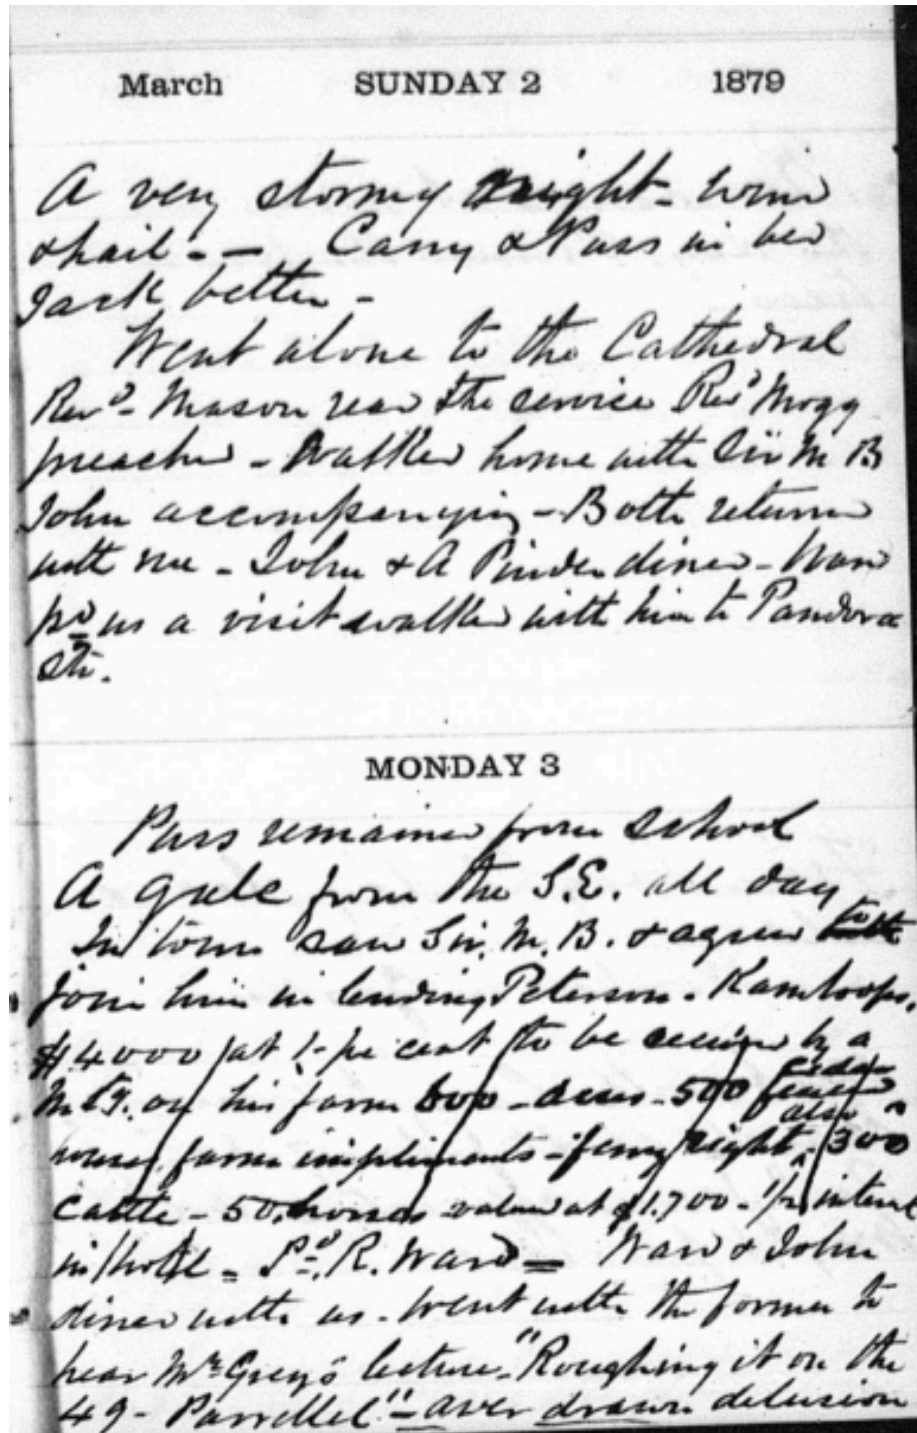 March SUNDAY 2 1879
A very stormy night - wind
& hail - - Casey & Puss in bed
Jack better -
Went alone to the Cathedral
Revd - Mason read the service Revd Mogg
preached - Walked home with Sir M B
John accompanying - Both returned
with me - John & A Pinder dined - Ward
pd us a visit walked with him to Pandora
St.
MONDAY 3
Puss remained from school
A gale from the S.E. all day
In town saw Sir. M. B. & agreed to
join him in lending Peterson - Kamloops,
$4000 at 1 - pe cent to be secured by a
Mtg. on his farm 600 - acres - 500 fenced
cedar also
house, farm impliments - ferry right, 300
cattle - 50 horses valued at $1.700 - 1/2 interest
in hotel = Pd. R. Ward = Ward & John
dined with us - Went with the former to
hear Mr Grey's lecture "Roughing it on the
49 - Parrellel" - over drawn delusion